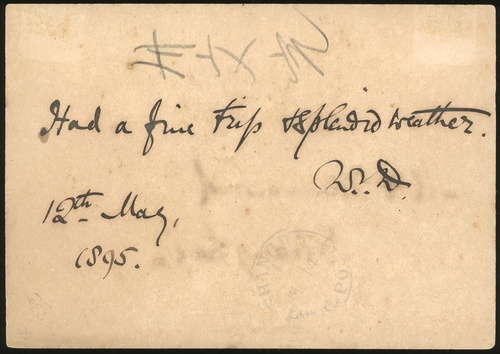 Had a fine trip & splendid weather.
W. D.
12th May,
1895.